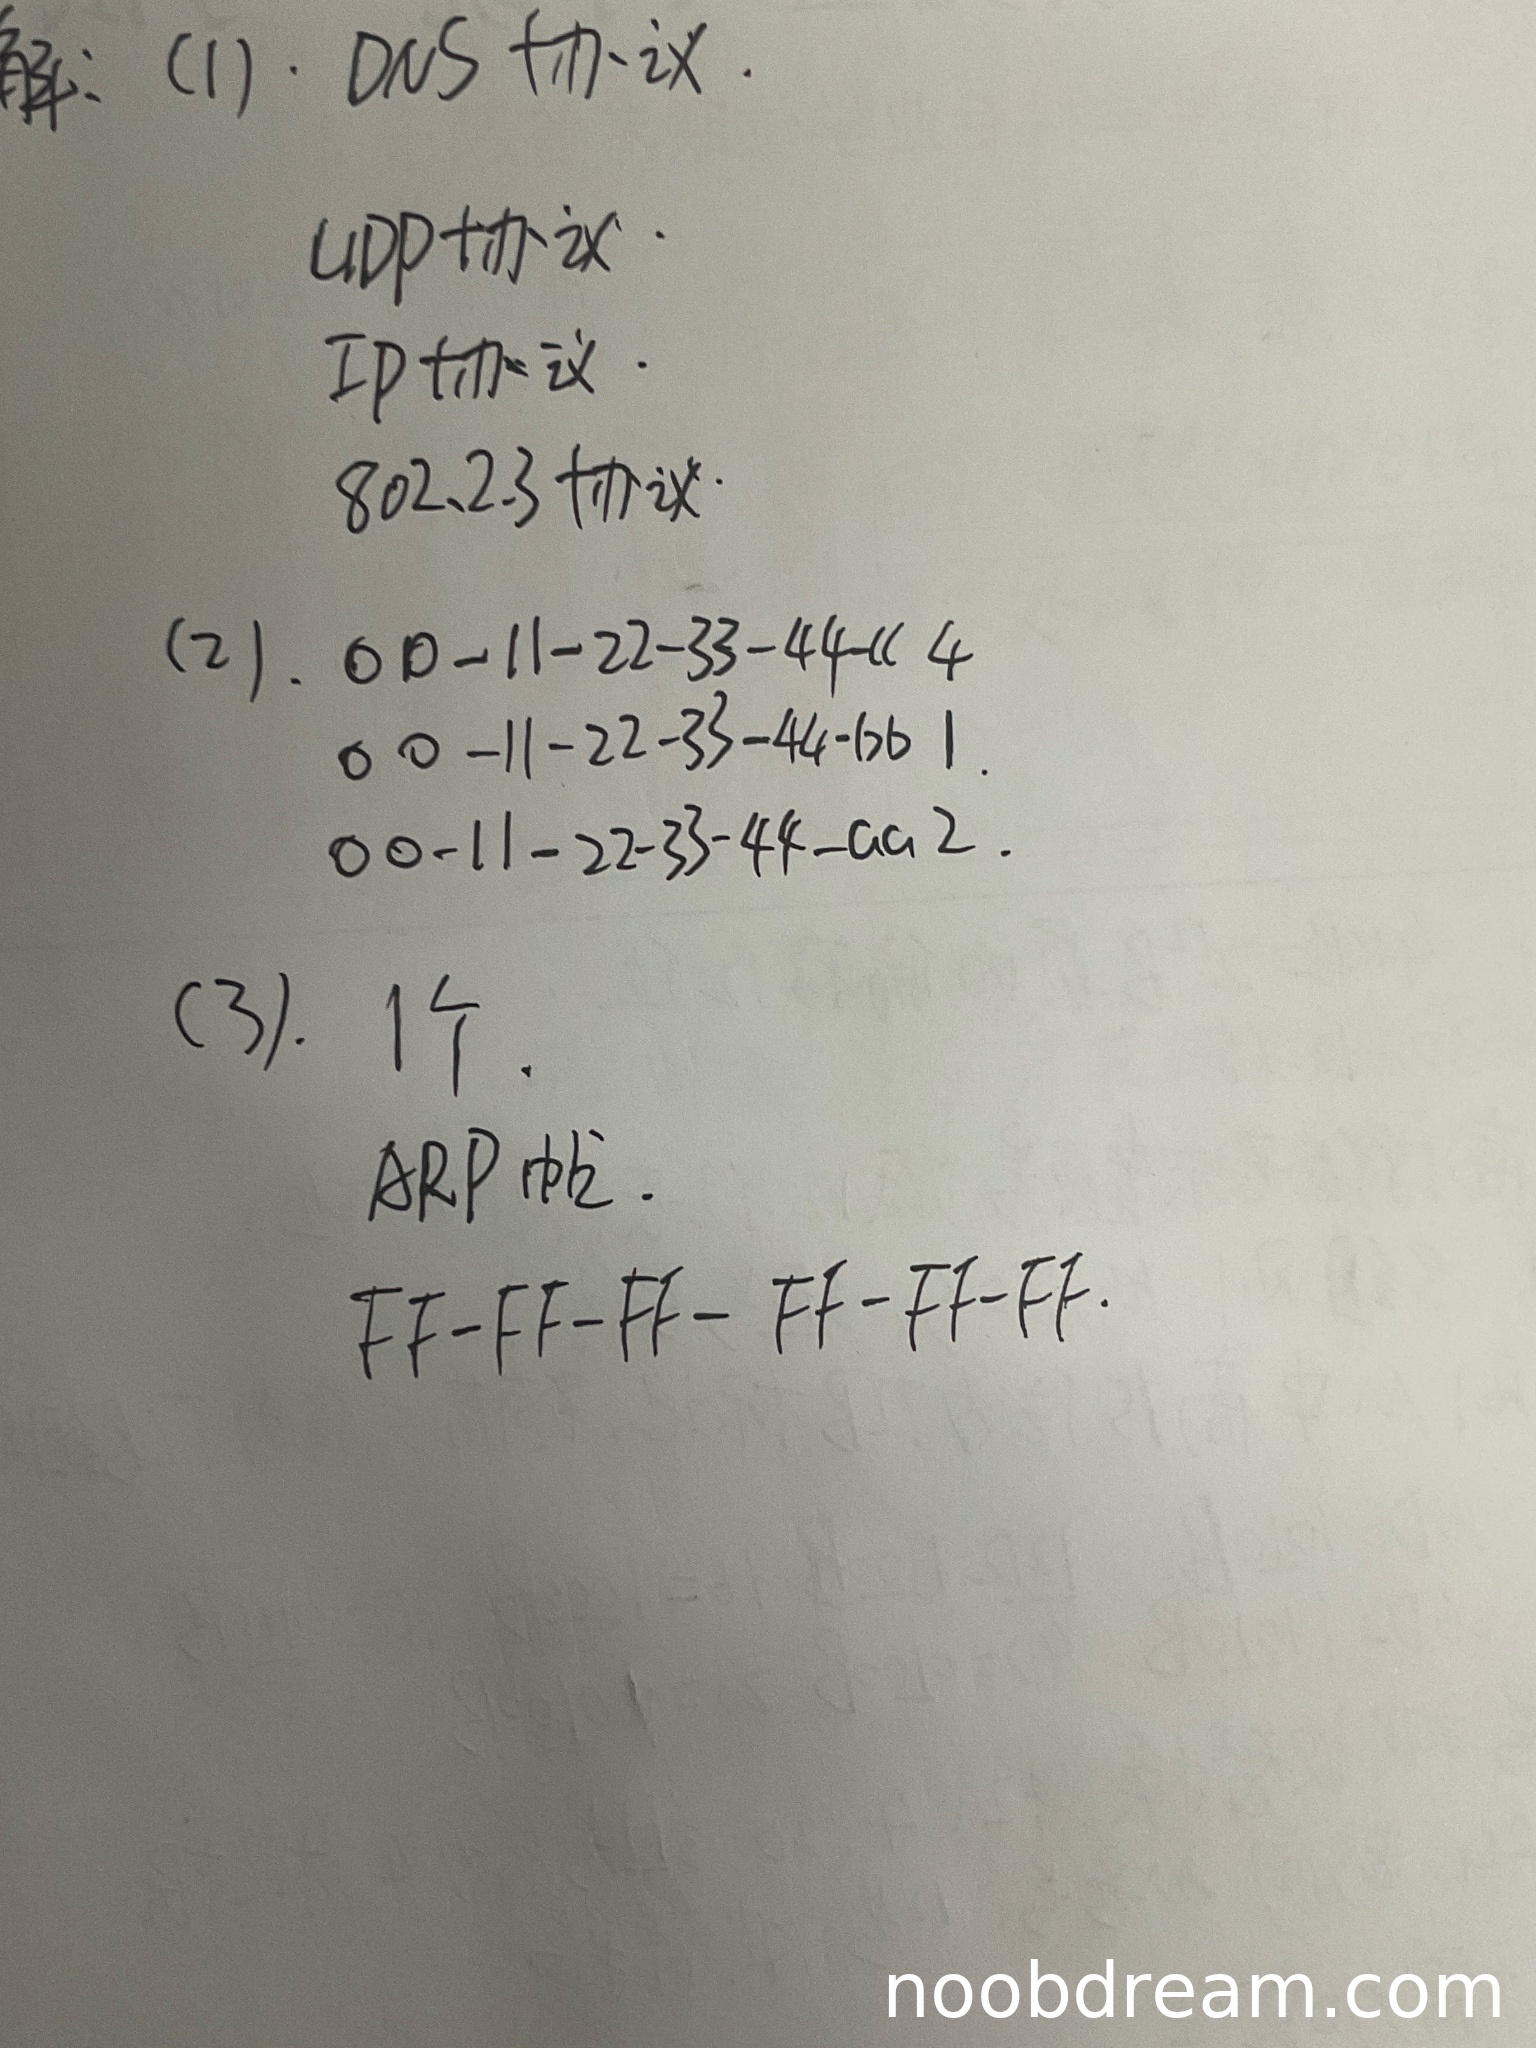 解: (1). DNS 协议.
UDP协议.
IP协议.
802.2.3协议.
(2). 00-11-22-33-44-cc 4
00-11-22-33-44-bb 1.
00-11-22-33-44-aa 2.
(3). 1个.
ARP帧.
FF-FF-FF-FF-FF-FF.
noobdream.com